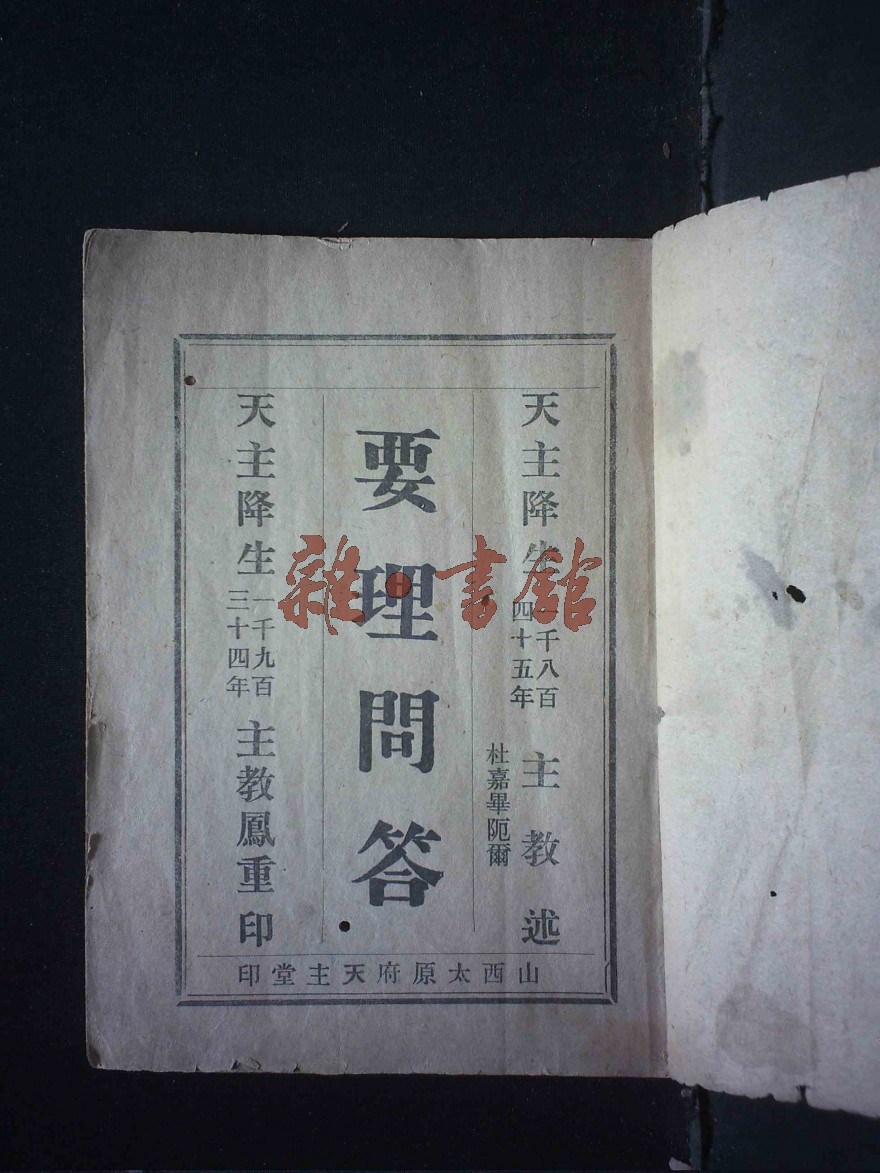 天主降生一千八百四十五年 主教 述
杜嘉畢阨爾
要理問答
天主降生一千九百三十四年 主教鳳重印
印堂主天府原太西山
雜·書館